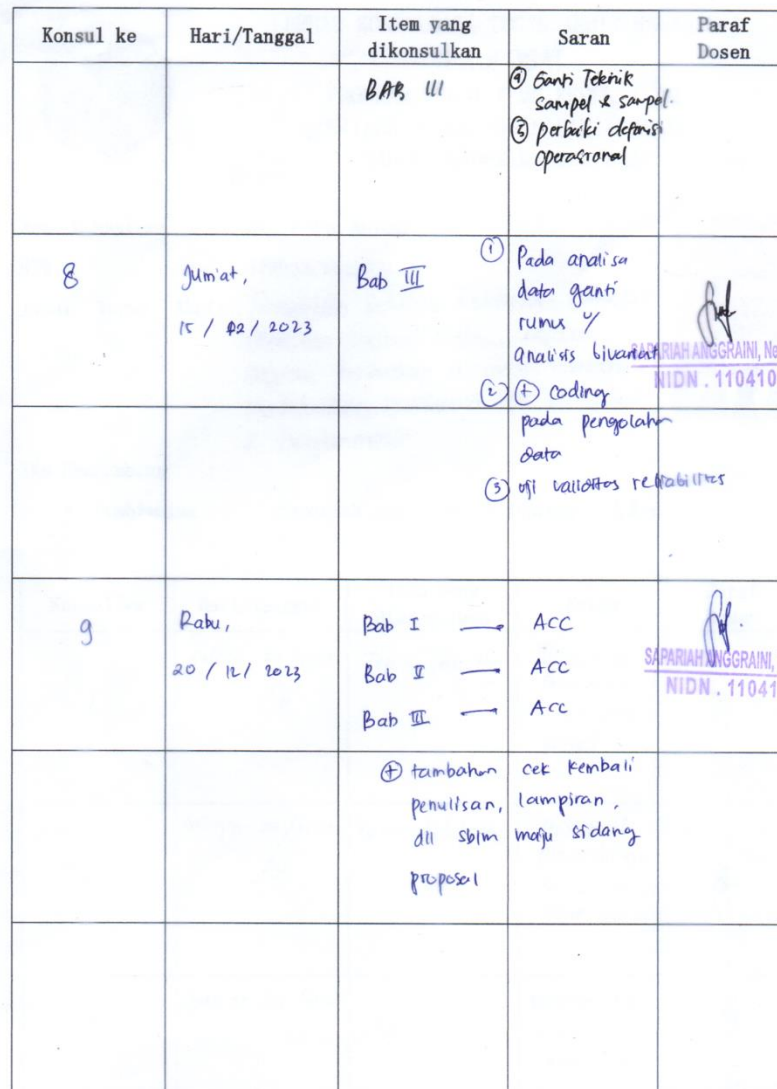 Konsul ke Hari/Tanggal Item yang dikonsulkan Saran Paraf Dosen
BAB III
④ Ganti Teknik
sampel & sampel.
⑤ perbaiki definisi
operasional
8 Jum'at,
15 / 12 / 2023
Bab III
① Pada analisa
data ganti
rumus u/
analisis bivariat
② ⊕ coding
pada pengolahan
data
③ uji validitas reliabilitas
SAPARIAH ANGGRAINI, Ne
NIDN . 110410
9 Rabu,
20 / 12 / 2023
Bab I — ACC
Bab II — ACC
Bab III — ACC
SAPARIAH ANGGRAINI,
NIDN . 11041
⊕ tambahan cek kembali
penulisan, lampiran,
dll sblm maju sidang
proposal